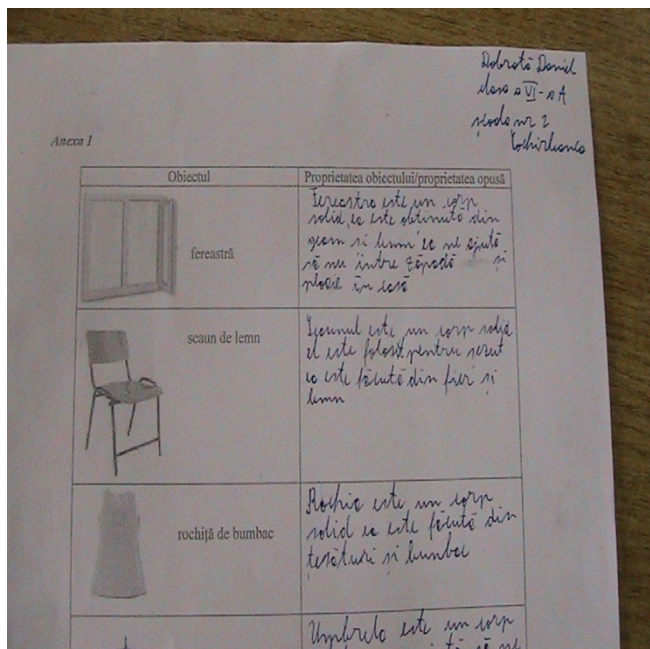 Dobrotă Daniel
clasa a VI-a A
școala nr 2
Anexa 1
Obiectul
Proprietatea obiectului/proprietatea opusă
fereastră
Fereastra este un corp
solid, ea este obtinută din
geam si lemn ea ne ajută
să nu intre zăpadă și
ploaie în casă
scaun de lemn
Scaunul este un corp solid
el este folosit pentru șezut
ea este făcută din fier și
lemn
rochiță de bumbac
Rochia este un corp
solid ea este făcută din
țesături și bumbac
Umbrela este un corp